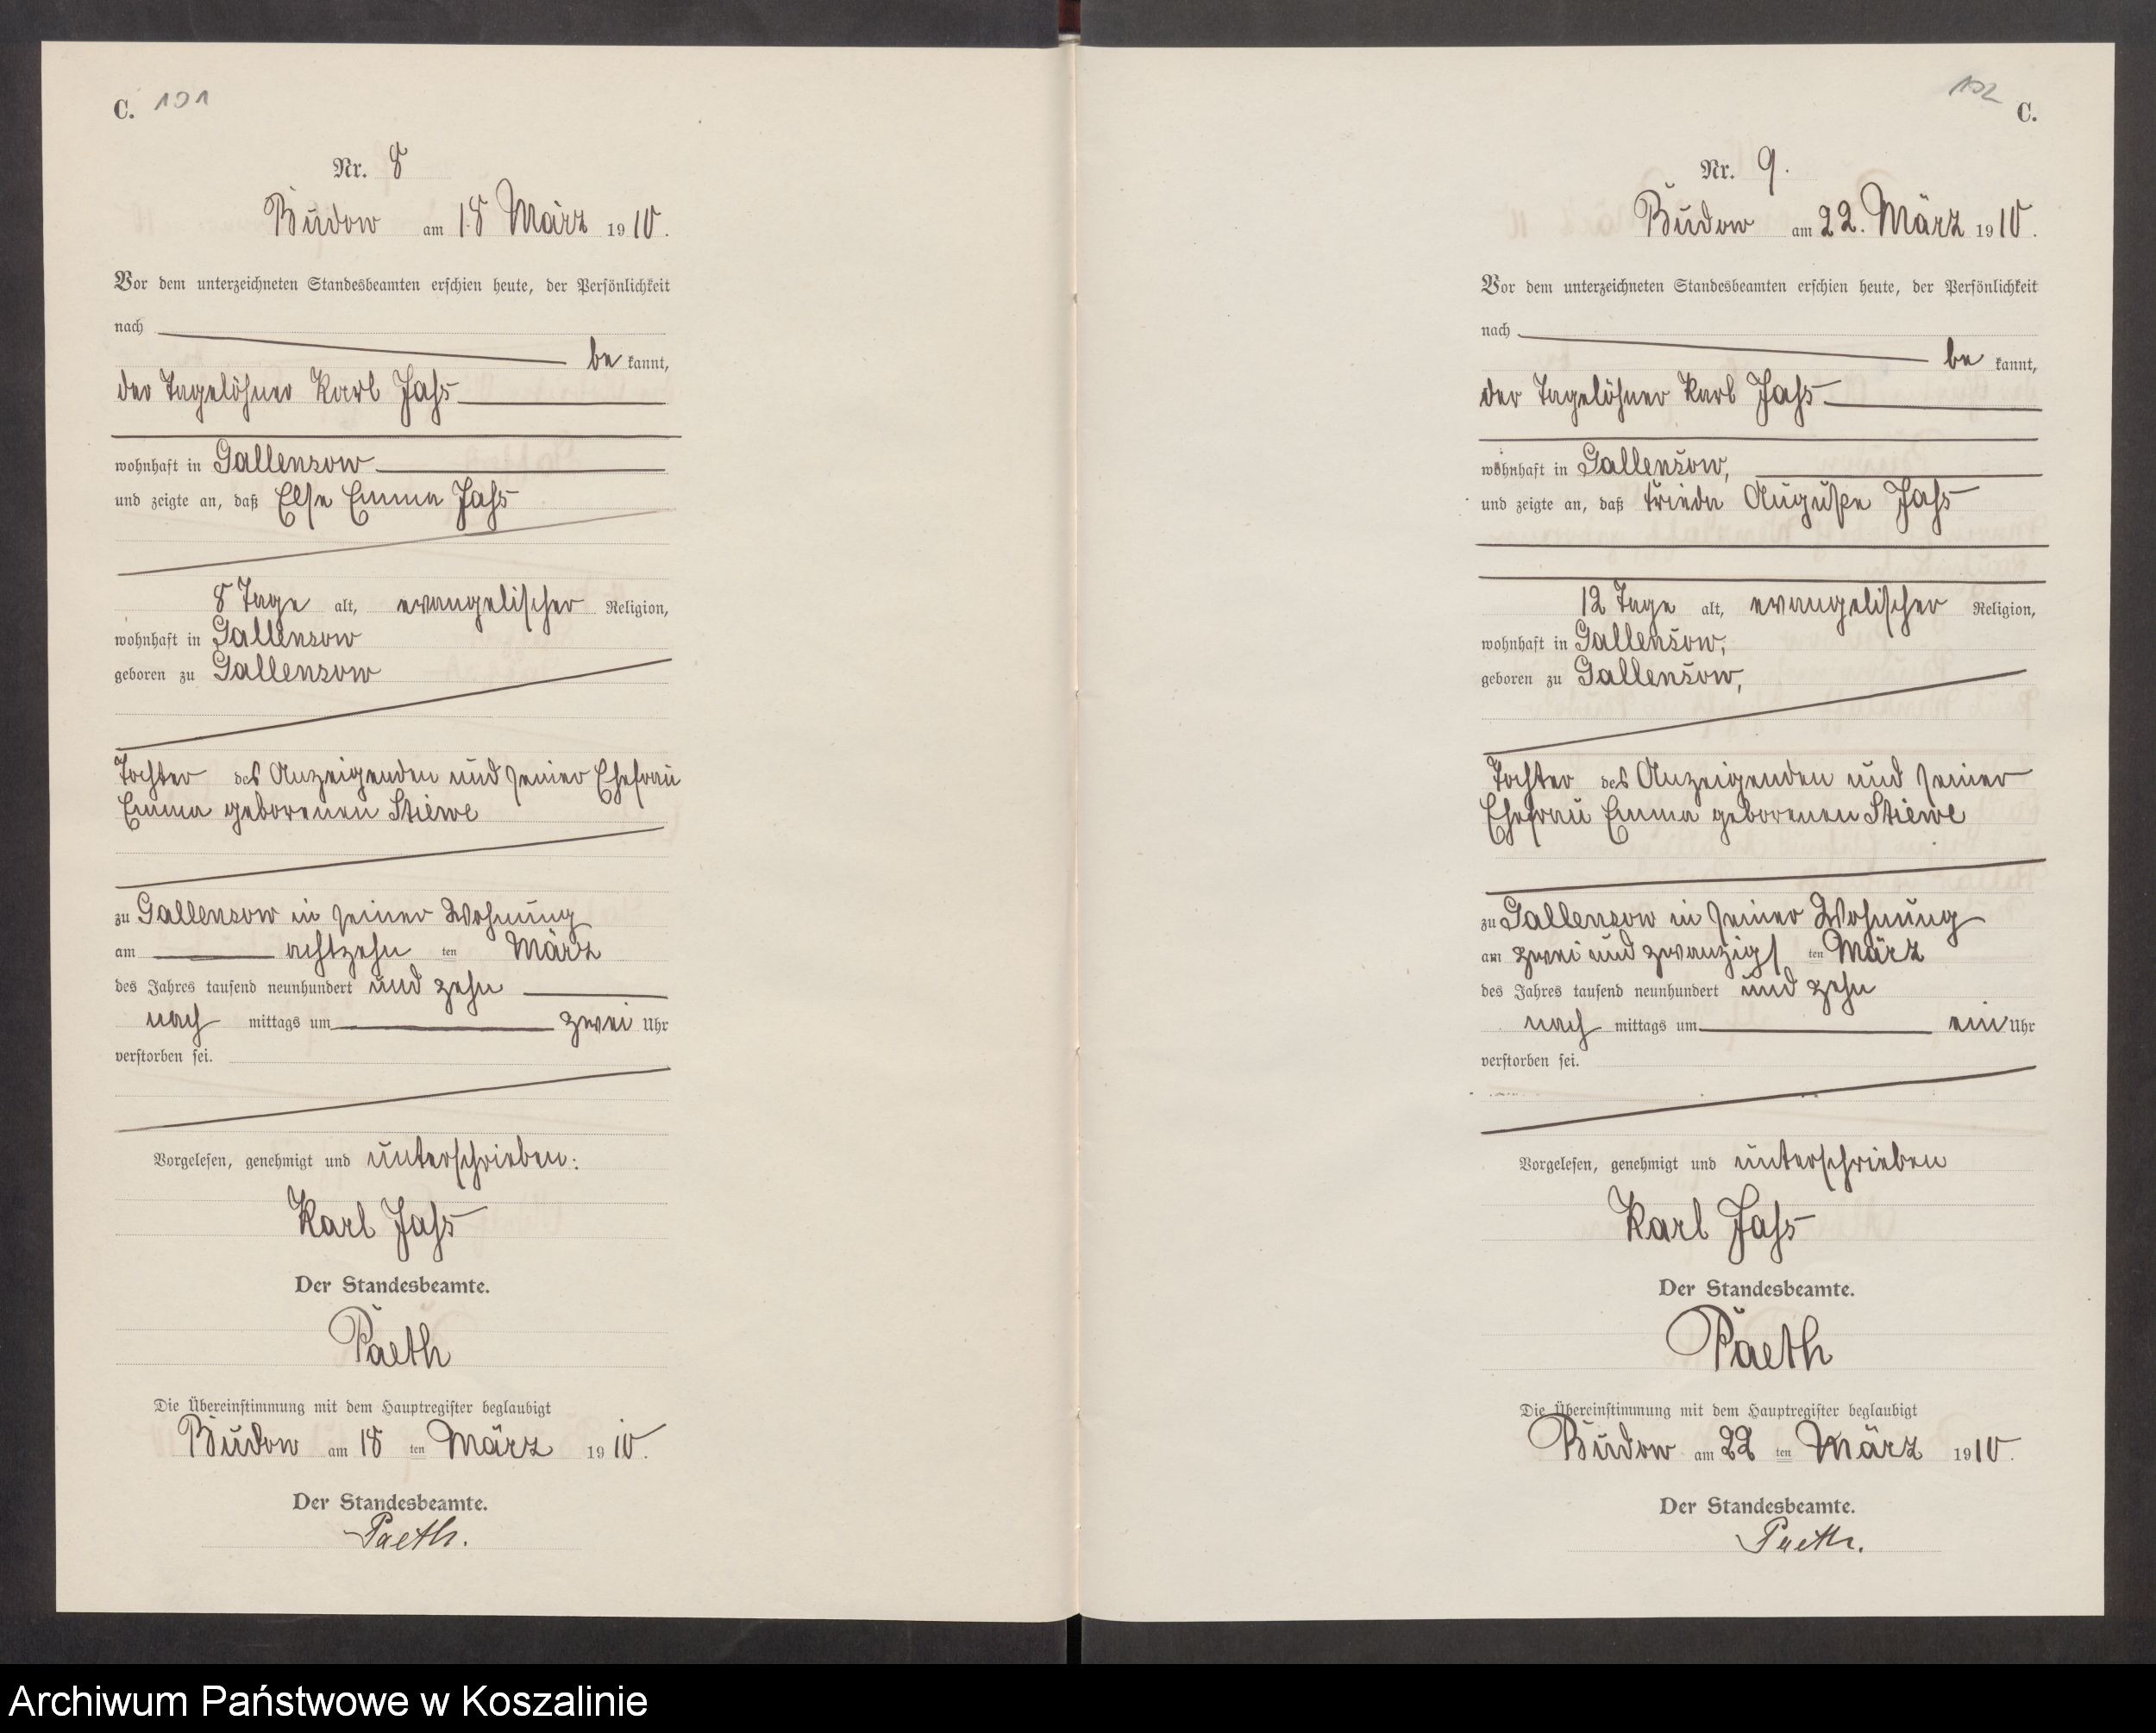 C. 101
Nr. 8
Budow am 18 März 1910.
Vor dem unterzeichneten Standesbeamten erschien heute, der Persönlichkeit
nach
be kannt,
der Tagelöhner Karl Jahs
wohnhaft in Gallensow
und zeigte an, daß Else Emma Jahs
8 Tage alt, evangelischer Religion,
wohnhaft in Gallensow
geboren zu Gallensow
Tochter des Anzeigenden und seiner Ehefrau
Emma geborenen Stiewe
zu Gallensow in seiner Wohnung
am achtzehn ten März
des Jahres tausend neunhundert und zehn
nach mittags um zwei Uhr
verstorben sei.
Vorgelesen, genehmigt und unterschrieben:
Karl Jahs
Der Standesbeamte.
Paeth
Die Übereinstimmung mit dem Hauptregister beglaubigt
Budow am 18 ten März 1910.
Der Standesbeamte.
Paeth.
102
C.
Nr. 9.
Budow am 22. März 1910.
Vor dem unterzeichneten Standesbeamten erschien heute, der Persönlichkeit
nach
be kannt,
der Tagelöhner Karl Jahs
wohnhaft in Gallensow,
und zeigte an, daß Frieda Auguste Jahs
12 Tage alt, evangelischer Religion,
wohnhaft in Gallensow,
geboren zu Gallensow,
Tochter des Anzeigenden und seiner
Ehefrau Emma geborenen Stiewe
zu Gallensow in seiner Wohnung
am zwei und zwanzigs ten März
des Jahres tausend neunhundert und zehn
nach mittags um ein Uhr
verstorben sei.
Vorgelesen, genehmigt und unterschrieben
Karl Jahs
Der Standesbeamte.
Paeth
Die Übereinstimmung mit dem Hauptregister beglaubigt
Budow am 22 ten März 1910.
Der Standesbeamte.
Paeth.
Archiwum Państwowe w Koszalinie